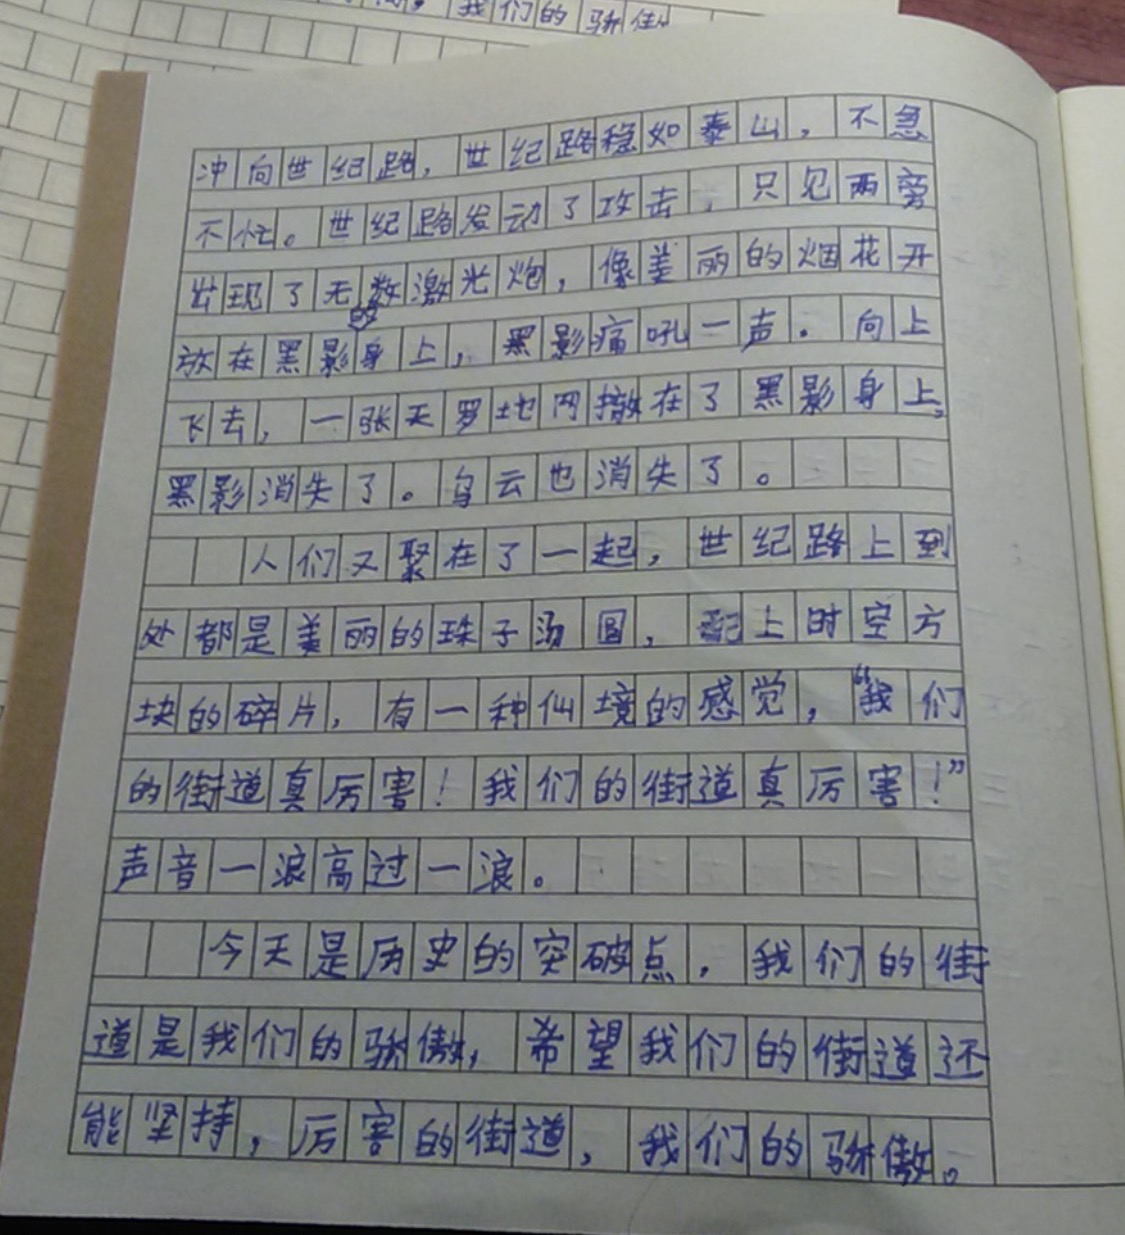 我们的骄傲
冲向世纪路，世纪路稳如泰山，不急
不忙。世纪路发动了攻击，只见两旁
出现了无数激光炮，像美丽的烟花开
放在黑影的身上，黑影痛吼一声．向上
飞去，一张天罗地网撒在了黑影身上，
黑影消失了。乌云也消失了。
人们又聚在了一起，世纪路上到
处都是美丽的珠子汤圆，配上时空方
块的碎片，有一种仙境的感觉，“我们
的街道真厉害！我们的街道真厉害！”
声音一浪高过一浪。
今天是历史的突破点，我们的街
道是我们的骄傲，希望我们的街道还
能坚持，厉害的街道，我们的骄傲。